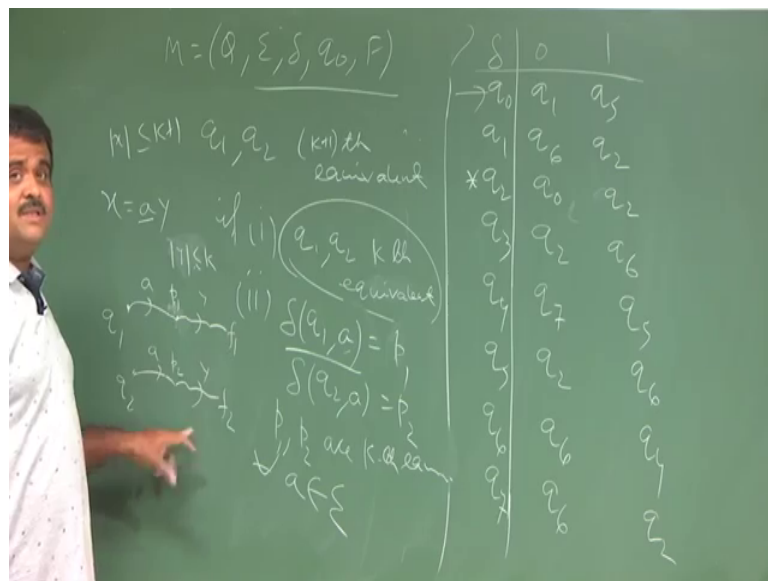 M = (Q, Σ, δ, q₀, F)
|x| ≤ k+1 q₁, q₂ (k+1) th
equivalent
x = ay if (i) q₁, q₂ k th
equivalent
|y| ≤ k
(ii) δ(q₁, a) = p₁
δ(q₂, a) = p₂
p₁, p₂ are k-th
a ∈ Σ
q₁ a p₁ y f₁
q₂ a p₂ y f₂
δ 0 1
→ q₀ q₁ q₅
q₁ q₆ q₂
* q₂ q₀ q₂
q₃ q₂ q₆
q₄ q₇ q₅
q₅ q₂ q₆
q₆ q₆ q₄
q₇ q₆ q₂